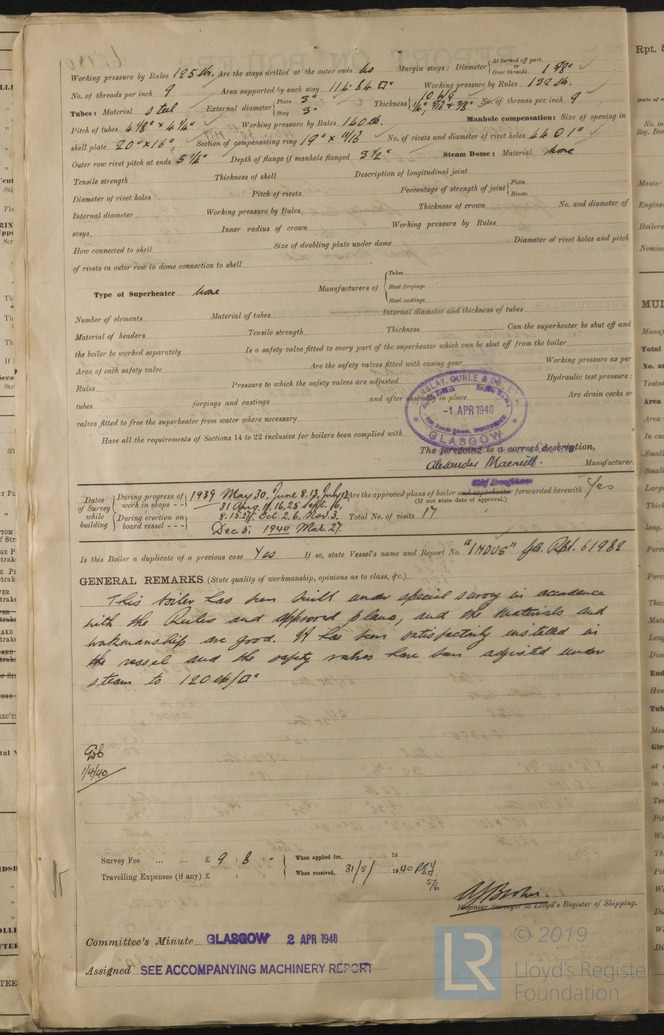 Working pressure by Rules 125 lb. Are the stays drilled at the outer ends No Margin stays: Diameter { At turned off part, or Over threads 1 5/8"
No. of threads per inch 9 Area supported by each stay Working pressure by Rules 122 lb.
Tubes: Material steel External diameter { Plain 3" Stay 3" Thickness { 10 WG No. of threads per inch 9
Pitch of tubes 4 1/8" x 4 1/4" Working pressure by Rules 140 lb. Manhole compensation: Size of opening in
shell plate 20" x 16" Section of compensating ring 19" x 11/16 No. of rivets and diameter of rivet holes 44 @ 1"
Outer row rivet pitch at ends Depth of flange if manhole flanged 3 1/2" Steam Dome: Material None
Tensile strength Thickness of shell Description of longitudinal joint
Diameter of rivet holes Pitch of rivets Percentage of strength of joint { Plate Rivets
Internal diameter Working pressure by Rules Thickness of crown No. and diameter of
stays Inner radius of crown Working pressure by Rules
How connected to shell Size of doubling plate under dome Diameter of rivet holes and pitch
of rivets in outer row in dome connection to shell
Type of Superheater None Manufacturers of { Tubes Steel forgings Steel castings
Number of elements Material of tubes Internal diameter and thickness of tubes
Material of headers Tensile strength Thickness Can the superheater be shut off and
the boiler be worked separately Is a safety valve fitted to every part of the superheater which can be shut off from the boiler
Area of each safety valve Are the safety valves fitted with easing gear Working pressure as per
Rules Pressure to which the safety valves are adjusted Hydraulic test pressure:
tubes forgings and castings and after assembly in place Are drain cocks or
valves fitted to free the superheater from water where necessary
Have all the requirements of Sections 14 to 22 inclusive for boilers been complied with
-1 APR 1940
GLASGOW
The foregoing is a correct description,
Alexander Macneill. Manufacturer.
Chief Draughtsman
Dates of Survey while building { During progress of work in shops - - 1939 May 30, June 8.13, July 12 Are the approved plans of boiler and superheater forwarded herewith Yes
31 Aug. 11.16,28 Sept. 16, (If not state date of approval.)
During erection on board vessel - - - 8.15.27, Oct. 2.6, Nov. 3, Total No. of visits 17
Dec 5, 1940 Mar. 27.
Is this Boiler a duplicate of a previous case Yes If so, state Vessel's name and Report No. "INDUS" Gls. Rpt. 51982
GENERAL REMARKS (State quality of workmanship, opinions as to class, &c.)
This boiler has been built under special survey in accordance
with the Rules and approved plans, and the materials and
workmanship are good. It has been satisfactorily installed in
the vessel and the safety valves have been adjusted under
steam to 120 lb/□"
1/4/40
Survey Fee ... ... £ 9 : 8 : - When applied for, 19
Travelling Expenses (if any) £ : : When received, 31/5/ 1940
Engineer Surveyor to Lloyd's Register of Shipping.
Committee's Minute GLASGOW 2 APR 1940
Assigned SEE ACCOMPANYING MACHINERY REPORT
LR © 2019
Lloyd's Register
Foundation